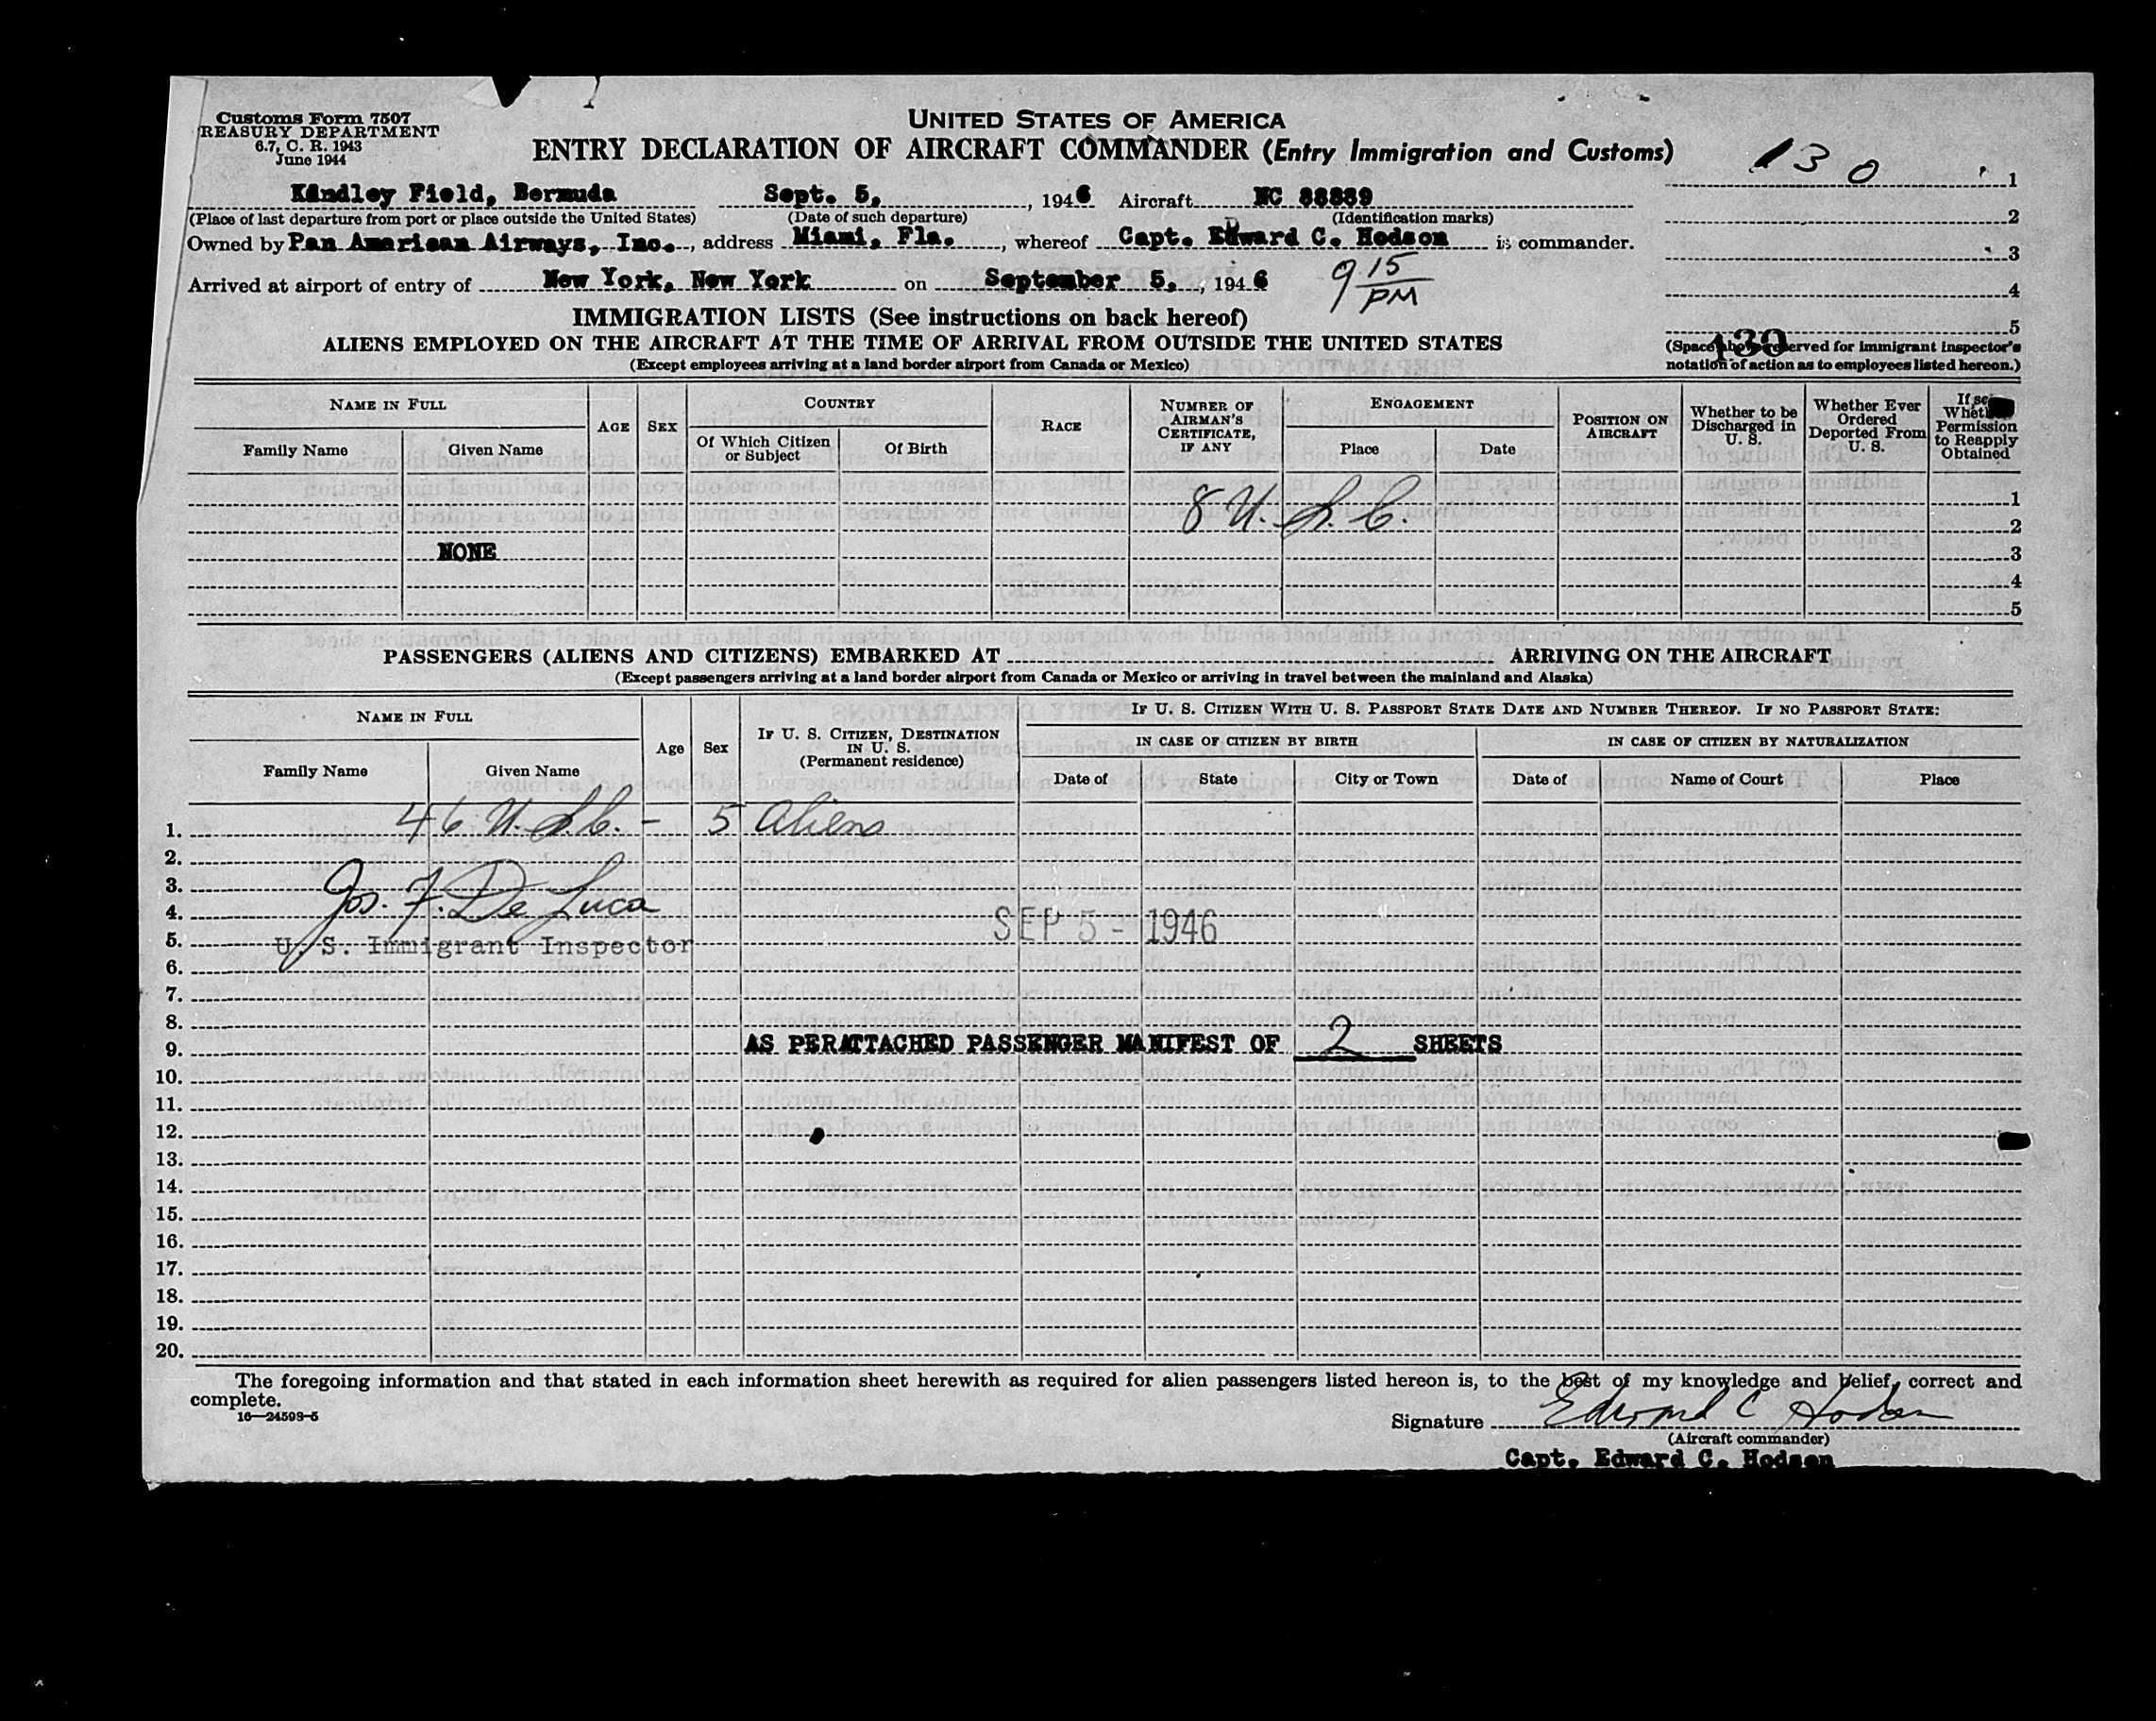 Customs Form 7507
REASURY DEPARTMENT
6.7, C. R. 1943
June 1944
UNITED STATES OF AMERICA
ENTRY DECLARATION OF AIRCRAFT COMMANDER (Entry Immigration and Customs)
130
1
2
3
4
5
Kindley Field, Bermuda Sept. 5, , 1946 Aircraft NC 88889
(Place of last departure from port or place outside the United States) (Date of such departure) (Identification marks)
Owned by Pan American Airways, Inc. , address Miami, Fla. , whereof Capt. Edward C. Hodson is commander.
Arrived at airport of entry of New York, New York on September 5, , 1946 9 15 PM
IMMIGRATION LISTS (See instructions on back hereof)
ALIENS EMPLOYED ON THE AIRCRAFT AT THE TIME OF ARRIVAL FROM OUTSIDE THE UNITED STATES
(Except employees arriving at a land border airport from Canada or Mexico)
130
(Space above reserved for immigrant inspector's
notation of action as to employees listed hereon.)
NAME IN FULL
Family Name Given Name
AGE SEX
COUNTRY
Of Which Citizen or Subject Of Birth
RACE
NUMBER OF AIRMAN'S CERTIFICATE, IF ANY
ENGAGEMENT
Place Date
POSITION ON AIRCRAFT
Whether to be Discharged in U. S.
Whether Ever Ordered Deported From U. S.
If so, Whether Permission to Reapply Obtained
8 U. S. C.
1
2
NONE 3
4
5
PASSENGERS (ALIENS AND CITIZENS) EMBARKED AT ARRIVING ON THE AIRCRAFT
(Except passengers arriving at a land border airport from Canada or Mexico or arriving in travel between the mainland and Alaska)
NAME IN FULL
Family Name Given Name
Age Sex
IF U. S. CITIZEN, DESTINATION IN U. S.
(Permanent residence)
IF U. S. CITIZEN WITH U. S. PASSPORT STATE DATE AND NUMBER THEREOF. IF NO PASSPORT STATE:
IN CASE OF CITIZEN BY BIRTH IN CASE OF CITIZEN BY NATURALIZATION
Date of State City or Town Date of Name of Court Place
1. 46 U.S.C. - 5 aliens
2.
3.
4. Jos. F. De Luca
5. U. S. Immigrant Inspector SEP 5 - 1946
6.
7.
8.
9. AS PER ATTACHED PASSENGER MANIFEST OF 2 SHEETS
10.
11.
12.
13.
14.
15.
16.
17.
18.
19.
20.
The foregoing information and that stated in each information sheet herewith as required for alien passengers listed hereon is, to the best of my knowledge and belief, correct and
complete.
16—24598-5
Signature Edward C Hodson
(Aircraft commander)
Capt. Edward C. Hodson